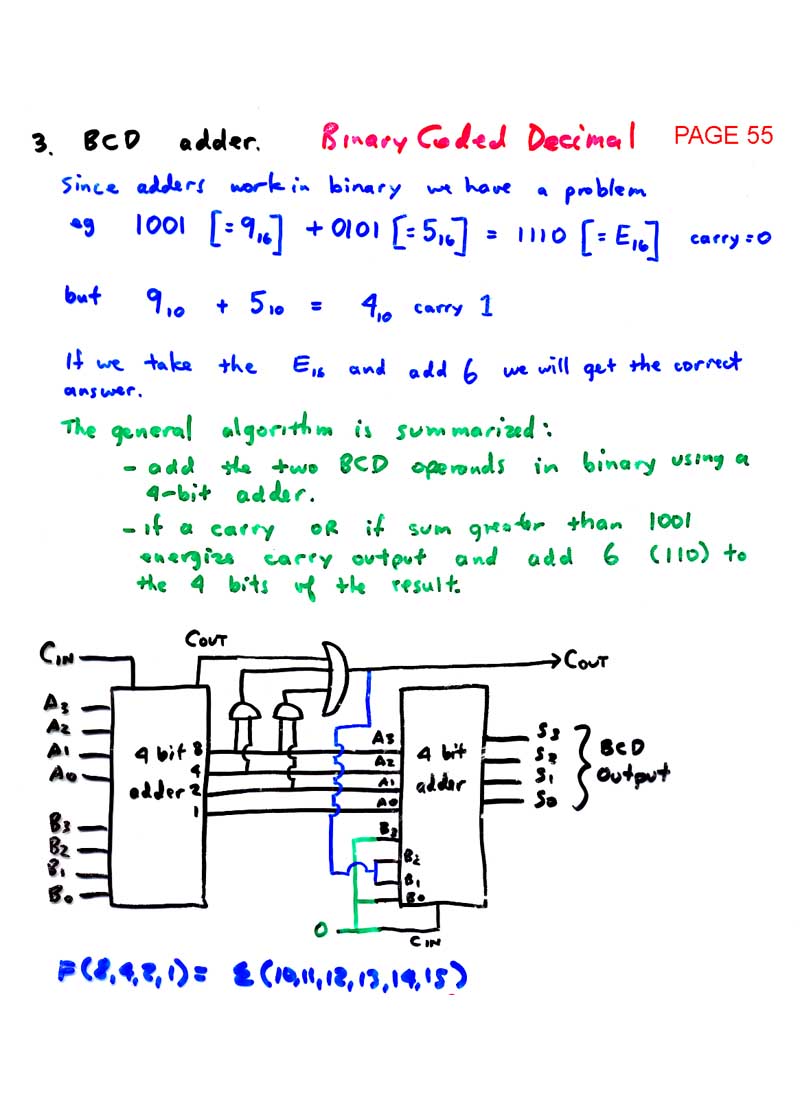 3. BCD adder. Binary Coded Decimal PAGE 55
Since adders work in binary we have a problem
eg 1001 [=9₁₆] + 0101 [=5₁₆] = 1110 [=E₁₆] carry=0
but 9₁₀ + 5₁₀ = 4₁₀ carry 1
If we take the E₁₆ and add 6 we will get the correct
answer.
The general algorithm is summarized:
- add the two BCD operands in binary using a
4-bit adder.
- if a carry OR if sum greater than 1001
energize carry output and add 6 (110) to
the 4 bits of the result.
CIN
COUT
COUT
A3
A2
A1
A0
B3
B2
B1
B0
4 bit
adder
8
4
2
1
A3
A2
A1
A0
B3
B2
B1
B0
4 bit
adder
S3
S2
S1
S0
BCD
Output
0
CIN
F(8,4,2,1) = Σ(10,11,12,13,14,15)